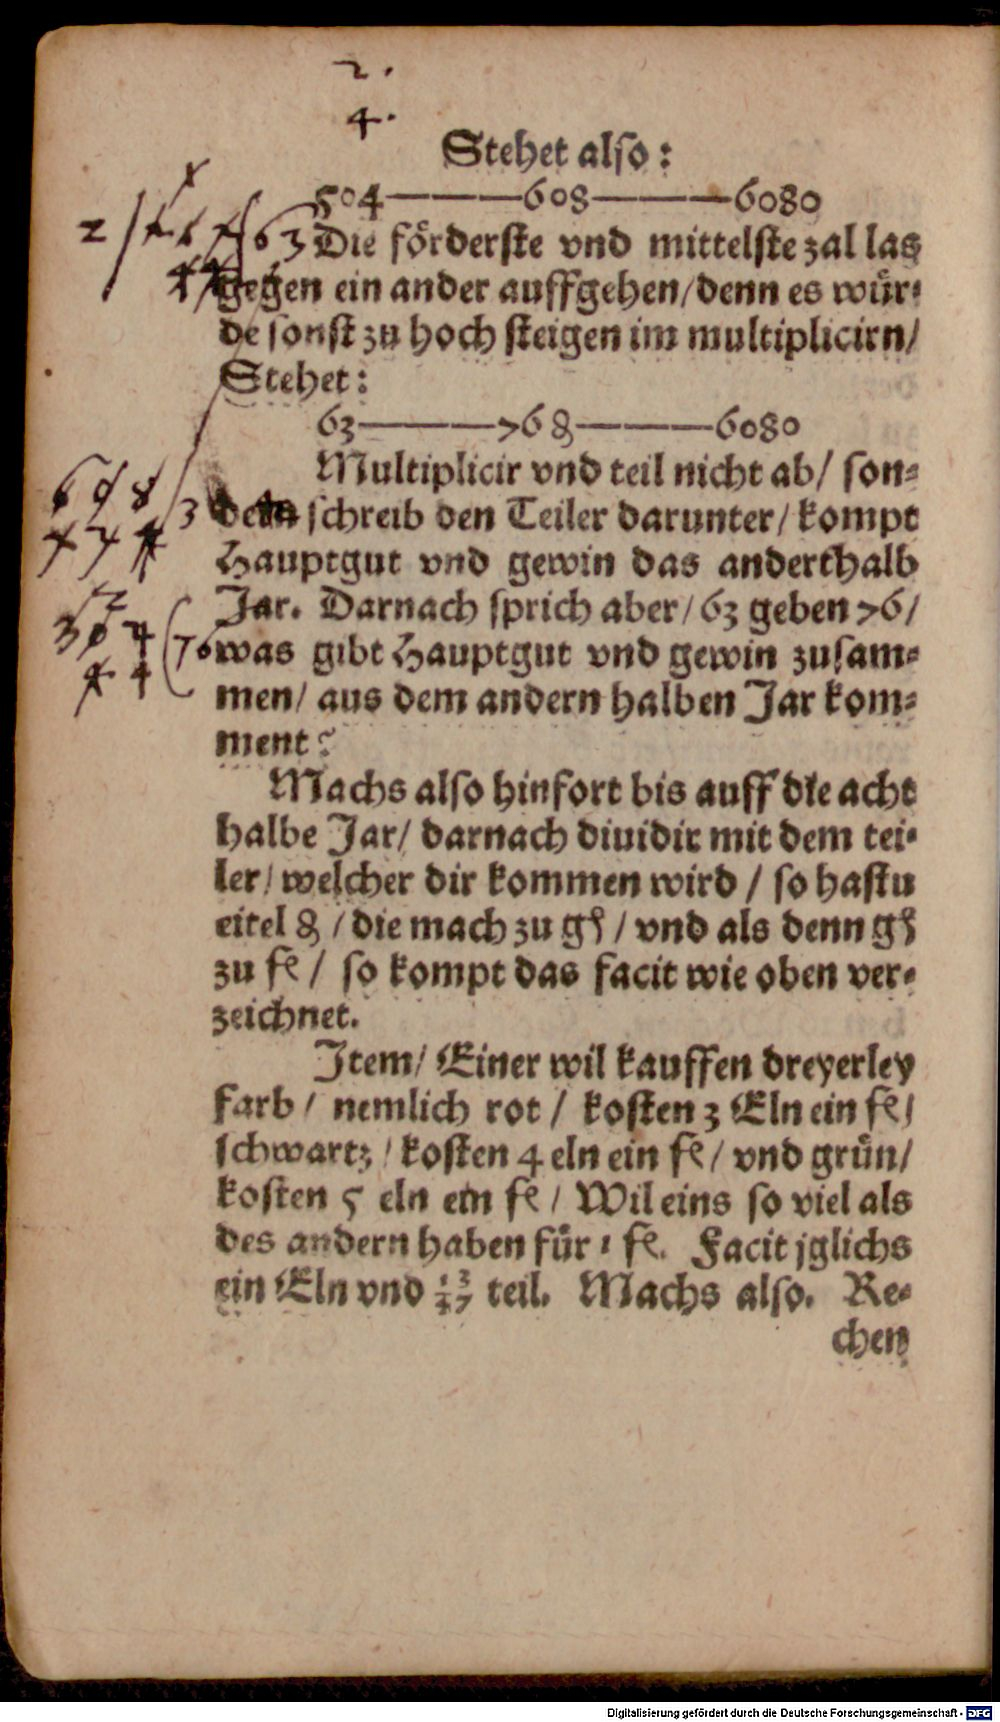 2.
4.
Stehet also:
504———608———6080
2 63 Die förderste vnd mittelste zal las
gegen ein ander auffgehen/denn es wür-
de sonst zu hoch steigen im multiplicirn/
Stehet:
63———76 ₰———6080
Multiplicir vnd teil nicht ab/ son-
dern schreib den Teiler darunter/ kompt
Hauptgut vnd gewin das anderthalb
Jar. Darnach sprich aber/ 63 geben 76/
was gibt Hauptgut vnd gewin zusam-
men/ aus dem andern halben Jar kom-
ment?
Machs also hinfort bis auff die acht
halbe Jar/ darnach diuidir mit dem tei-
ler/ welcher dir kommen wird / so hastu
eitel ₰ / die mach zu gß / vnd als denn gß
zu fl / so kompt das facit wie oben ver-
zeichnet.
Item/ Einer wil kauffen dreyerley
farb / nemlich rot / kosten 3 Eln ein fl/
schwartz / kosten 4 eln ein fl/ vnd grün/
kosten 5 eln ein fl / Wil eins so viel als
des andern haben für 1 fl. Facit jglichs
ein Eln vnd 13/47 teil. Machs also. Re-
chen
6 0 8
3
3 0 4
(76
4 4
Digitalisierung gefördert durch die Deutsche Forschungsgemeinschaft - DFG